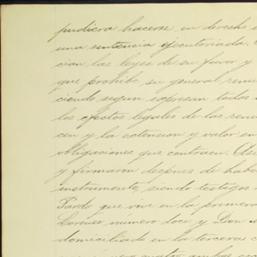 pudiera hacerse en derecho
una sentencia ejecutoriada.
cian las leyes de su favor y
que prohibe su general renun
ciendo segun espresan todos
los efectos legales de las renun
cen y la estension y valor en
obligaciones que contraen.
y firmaron despues de haber
instrumento, siendo testigos
Pardo que vive en la primera
numero doce y Don
domiciliado en la tercera c